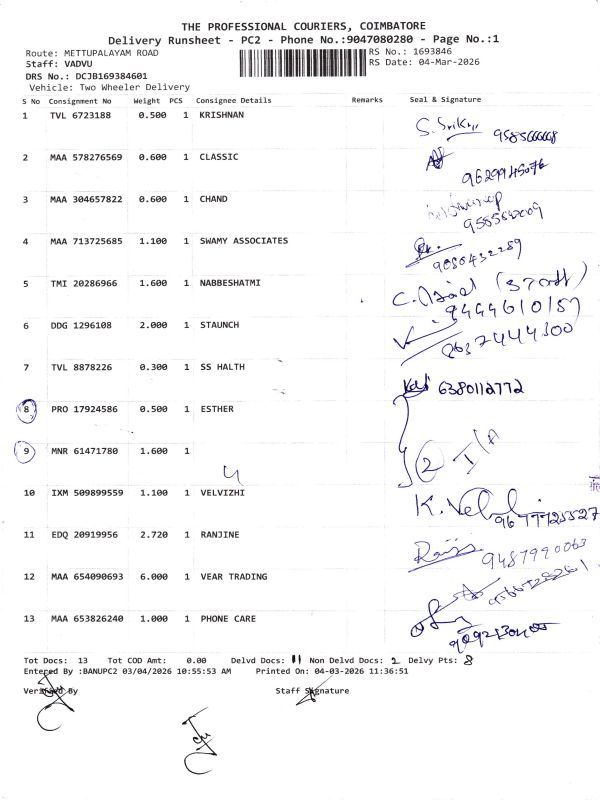 THE PROFESSIONAL COURIERS, COIMBATORE
Delivery Runsheet - PC2 - Phone No.:9047080280 - Page No.:1
Route: METTUPALAYAM ROAD RS No.: 1693846
Staff: VADVU RS Date: 04-Mar-2026
DRS No.: DCJB169384601
Vehicle: Two Wheeler Delivery
S No Consignment No Weight PCS Consignee Details Remarks Seal & Signature
1 TVL 6723188 0.500 1 KRISHNAN
2 MAA 578276569 0.600 1 CLASSIC
9629945076
3 MAA 304657822 0.600 1 CHAND
4 MAA 713725685 1.100 1 SWAMY ASSOCIATES
9080432289
5 TMI 20286966 1.600 1 NABBESHATMI
9444610157
6 DDG 1296108 2.000 1 STAUNCH
8637444300
7 TVL 8878226 0.300 1 SS HALTH
6380112772
8 PRO 17924586 0.500 1 ESTHER
9 MNR 61471780 1.600 1
2 I/A
4
10 IXM 509899559 1.100 1 VELVIZHI
11 EDQ 20919956 2.720 1 RANJINE
9487990063
12 MAA 654090693 6.000 1 VEAR TRADING
13 MAA 653826240 1.000 1 PHONE CARE
Tot Docs: 13 Tot COD Amt: 0.00 Delvd Docs: 11 Non Delvd Docs: 2 Delvy Pts: 8
Entered By :BANUPC2 03/04/2026 10:55:53 AM Printed On: 04-03-2026 11:36:51
Verified By Staff Signature